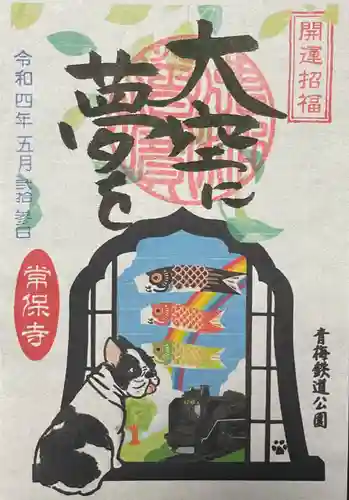 開運招福
大空に
夢を
令和四年五月弐拾参日
常保寺
青梅鉄道公園